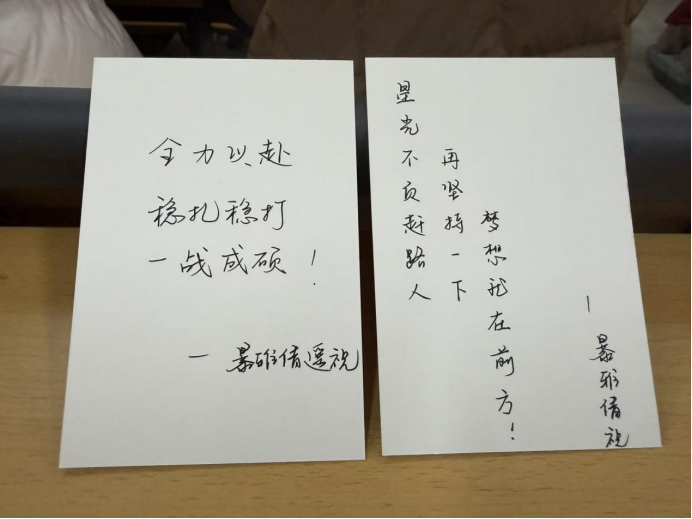 全力以赴
稳扎稳打
一战成硕！
— 暴雅倩遥祝
星光不负赶路人
再坚持一下
梦想就在前方！
— 暴雅倩祝